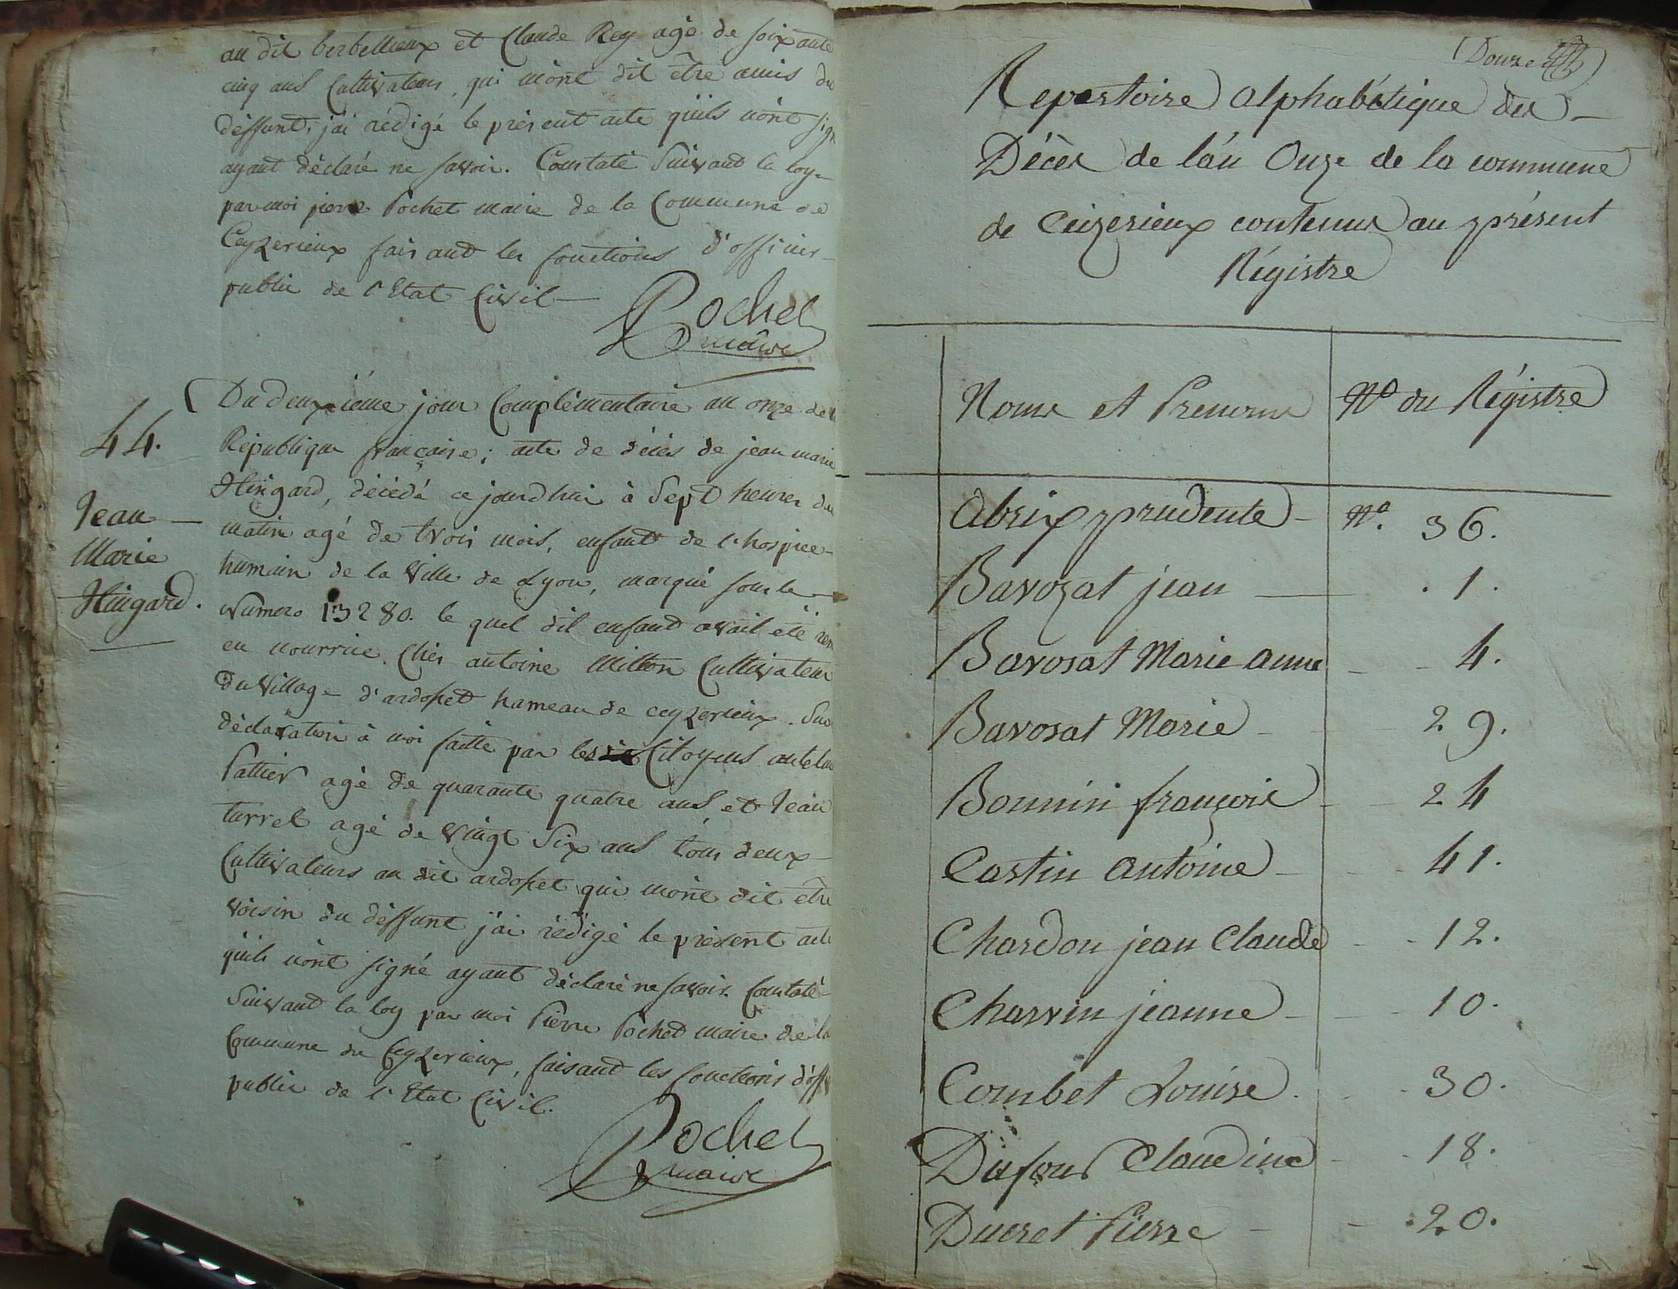 au dit berbellieux et Claude Rey agé de soixante
cinq ans Cultivateur, qui m'ont dit être amis du
déffunt, j'ai rédigé le présent acte qu'ils n'ont sig
ayant déclaré ne savoir. Constaté Suivant la loy
par moi pierre Pochet maire de la Commune de
Ceyzerieux faisant les fonctions d'officier
public de l'Etat Civil
Pochet
maire
44.
Jean
Marie
Hingard.
Du deuxième jour Complémentaire an onze de la
République française; acte de décès de jean marie
Hingard, décédé ce jourdhui à Sept heures du
matin agé de trois mois, enfant de l'hospice
humain de la Ville de Lyon, marqué sous le
Numero 13280. le quel dit enfant avait été
en nourrice Chés antoine Mitton Cultivateur
du Village d'ardosset hameau de ceyzerieux. Sur
déclaration à moi faitte par les Citoyens
Pattier agé de quarante quatre ans et Jean
turrel agé de vingt Six ans tous deux
Cultivateurs au dit ardosset qui m'ont dit être
voisin du déffunt j'ai rédigé le présent acte
qu'ils n'ont signé ayant déclaré ne savoir. Constaté
Suivant la loy par moi Pierre Pochet maire de la
Commune de Ceyzerieux, faisant les fonctions d'off
public de l'Etat Civil.
Pochet
maire
Douze
Repertoire Alphabétique des
Décès de l'an Onze de la commune
de Ceizerieux contenus au présent
Régistre
Noms et Prenoms N.º du Régistre
Abrix prudente N.º 36.
Bavozat jean . 1 .
Bavosat Marie anne 4.
Bavosat Marie 29.
Bonnin françois 24
Castin Antoine 41.
Chardon jean Claude 12.
Charvin jeanne 10.
Combet Louise. 30.
Dufour Claudine 18.
Ducret Pierre 20.